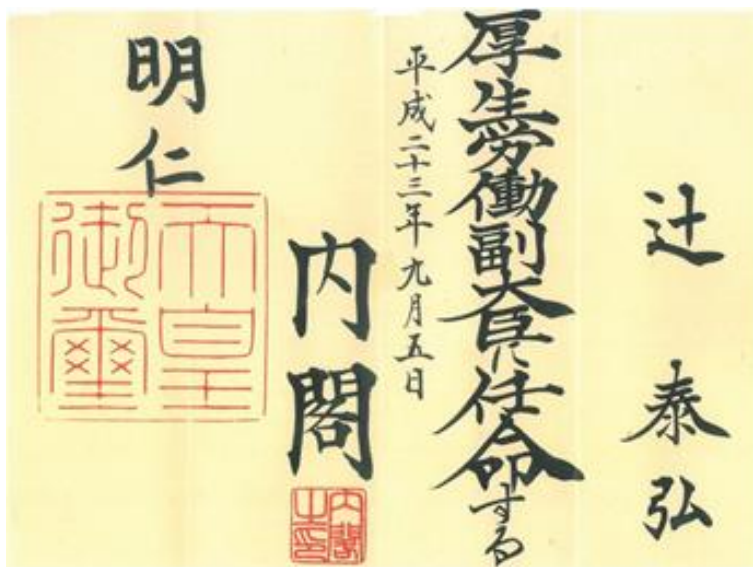 辻 泰弘
厚生労働副大臣に任命する
平成二十三年九月五日
内閣
内閣之印
明仁
天皇御璽